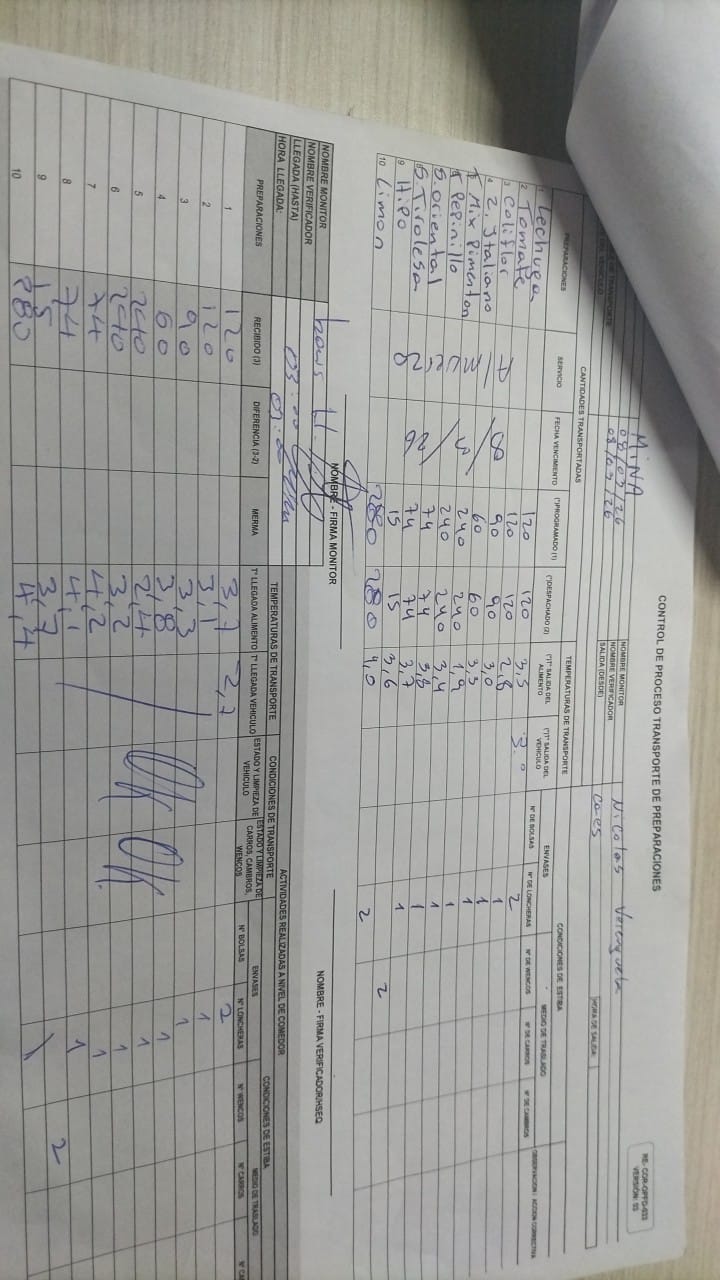 RE- COR-OPFD-033
VERSIÓN: 03
CONTROL DE PROCESO TRANSPORTE DE PREPARACIONES
MINA
NOMBRE MONITOR Nicolas
NOMBRE VERIFICADOR
SALIDA (DESDE)
HORA DE SALIDA:
CANTIDADES TRANSPORTADAS
TEMPERATURAS DE TRANSPORTE
CONDICIONES DE ESTIBA
ENVASES
MEDIO DE TRASLADO
PREPARACIONES SERVICIO FECHA VENCIMIENTO (*)PROGRAMADO (1) (*)DESPACHADO (2) (*)T° SALIDA DEL ALIMENTO (*)T° SALIDA DEL VEHICULO N° DE BOLSAS N° DE LONCHERAS N° DE WENCOS N° DE CARROS N° DE CAMBROS OBSERVACION / ACCION CORRECTIVA
1 Lechuga 120 120 3,5 3.0 2
2 Tomate 120 120 2,8
3 Coliflor 90 90 3,0 1
4 Z. Italiano 60 60 3,5 1
Mix Pimenton 240 240 1,9 1
Pepinillo 240 240 3,4 1
S. Oriental 74 74 3,8 1
S. Tirolesa 74 74 3,7 1
9 Hipo 15 15 3,6 1
10 Limon 280 280 4,0 2 2
NOMBRE - FIRMA MONITOR
NOMBRE - FIRMA VERIFICADOR/HSEQ
NOMBRE MONITOR
NOMBRE VERIFICADOR
LLEGADA (HASTA)
HORA LLEGADA:
ACTIVIDADES REALIZADAS A NIVEL DE COMEDOR
TEMPERATURAS DE TRANSPORTE
CONDICIONES DE TRANSPORTE
CONDICIONES DE ESTIBA
ENVASES
MEDIO DE TRASLADO
PREPARACIONES RECIBIDO (3) DIFERENCIA (3-2) MERMA T° LLEGADA ALIMENTO T° LLEGADA VEHICULO ESTADO Y LIMPIEZA DE VEHICULO ESTADO Y LIMPIEZA DE CARROS, CAMBROS, WENCOS N° BOLSAS N° LONCHERAS N° WENCOS N° CARROS
1 120 3,7 -2,7 2
2 120 3,1 1
3 90 3,3 1
4 60 3,8 1
5 240 2,4 1
6 240 3,2 1
7 74 4,2 1
8 74 4,1 1
9 15 3,7 2
10 280 4,4 1
OK OK